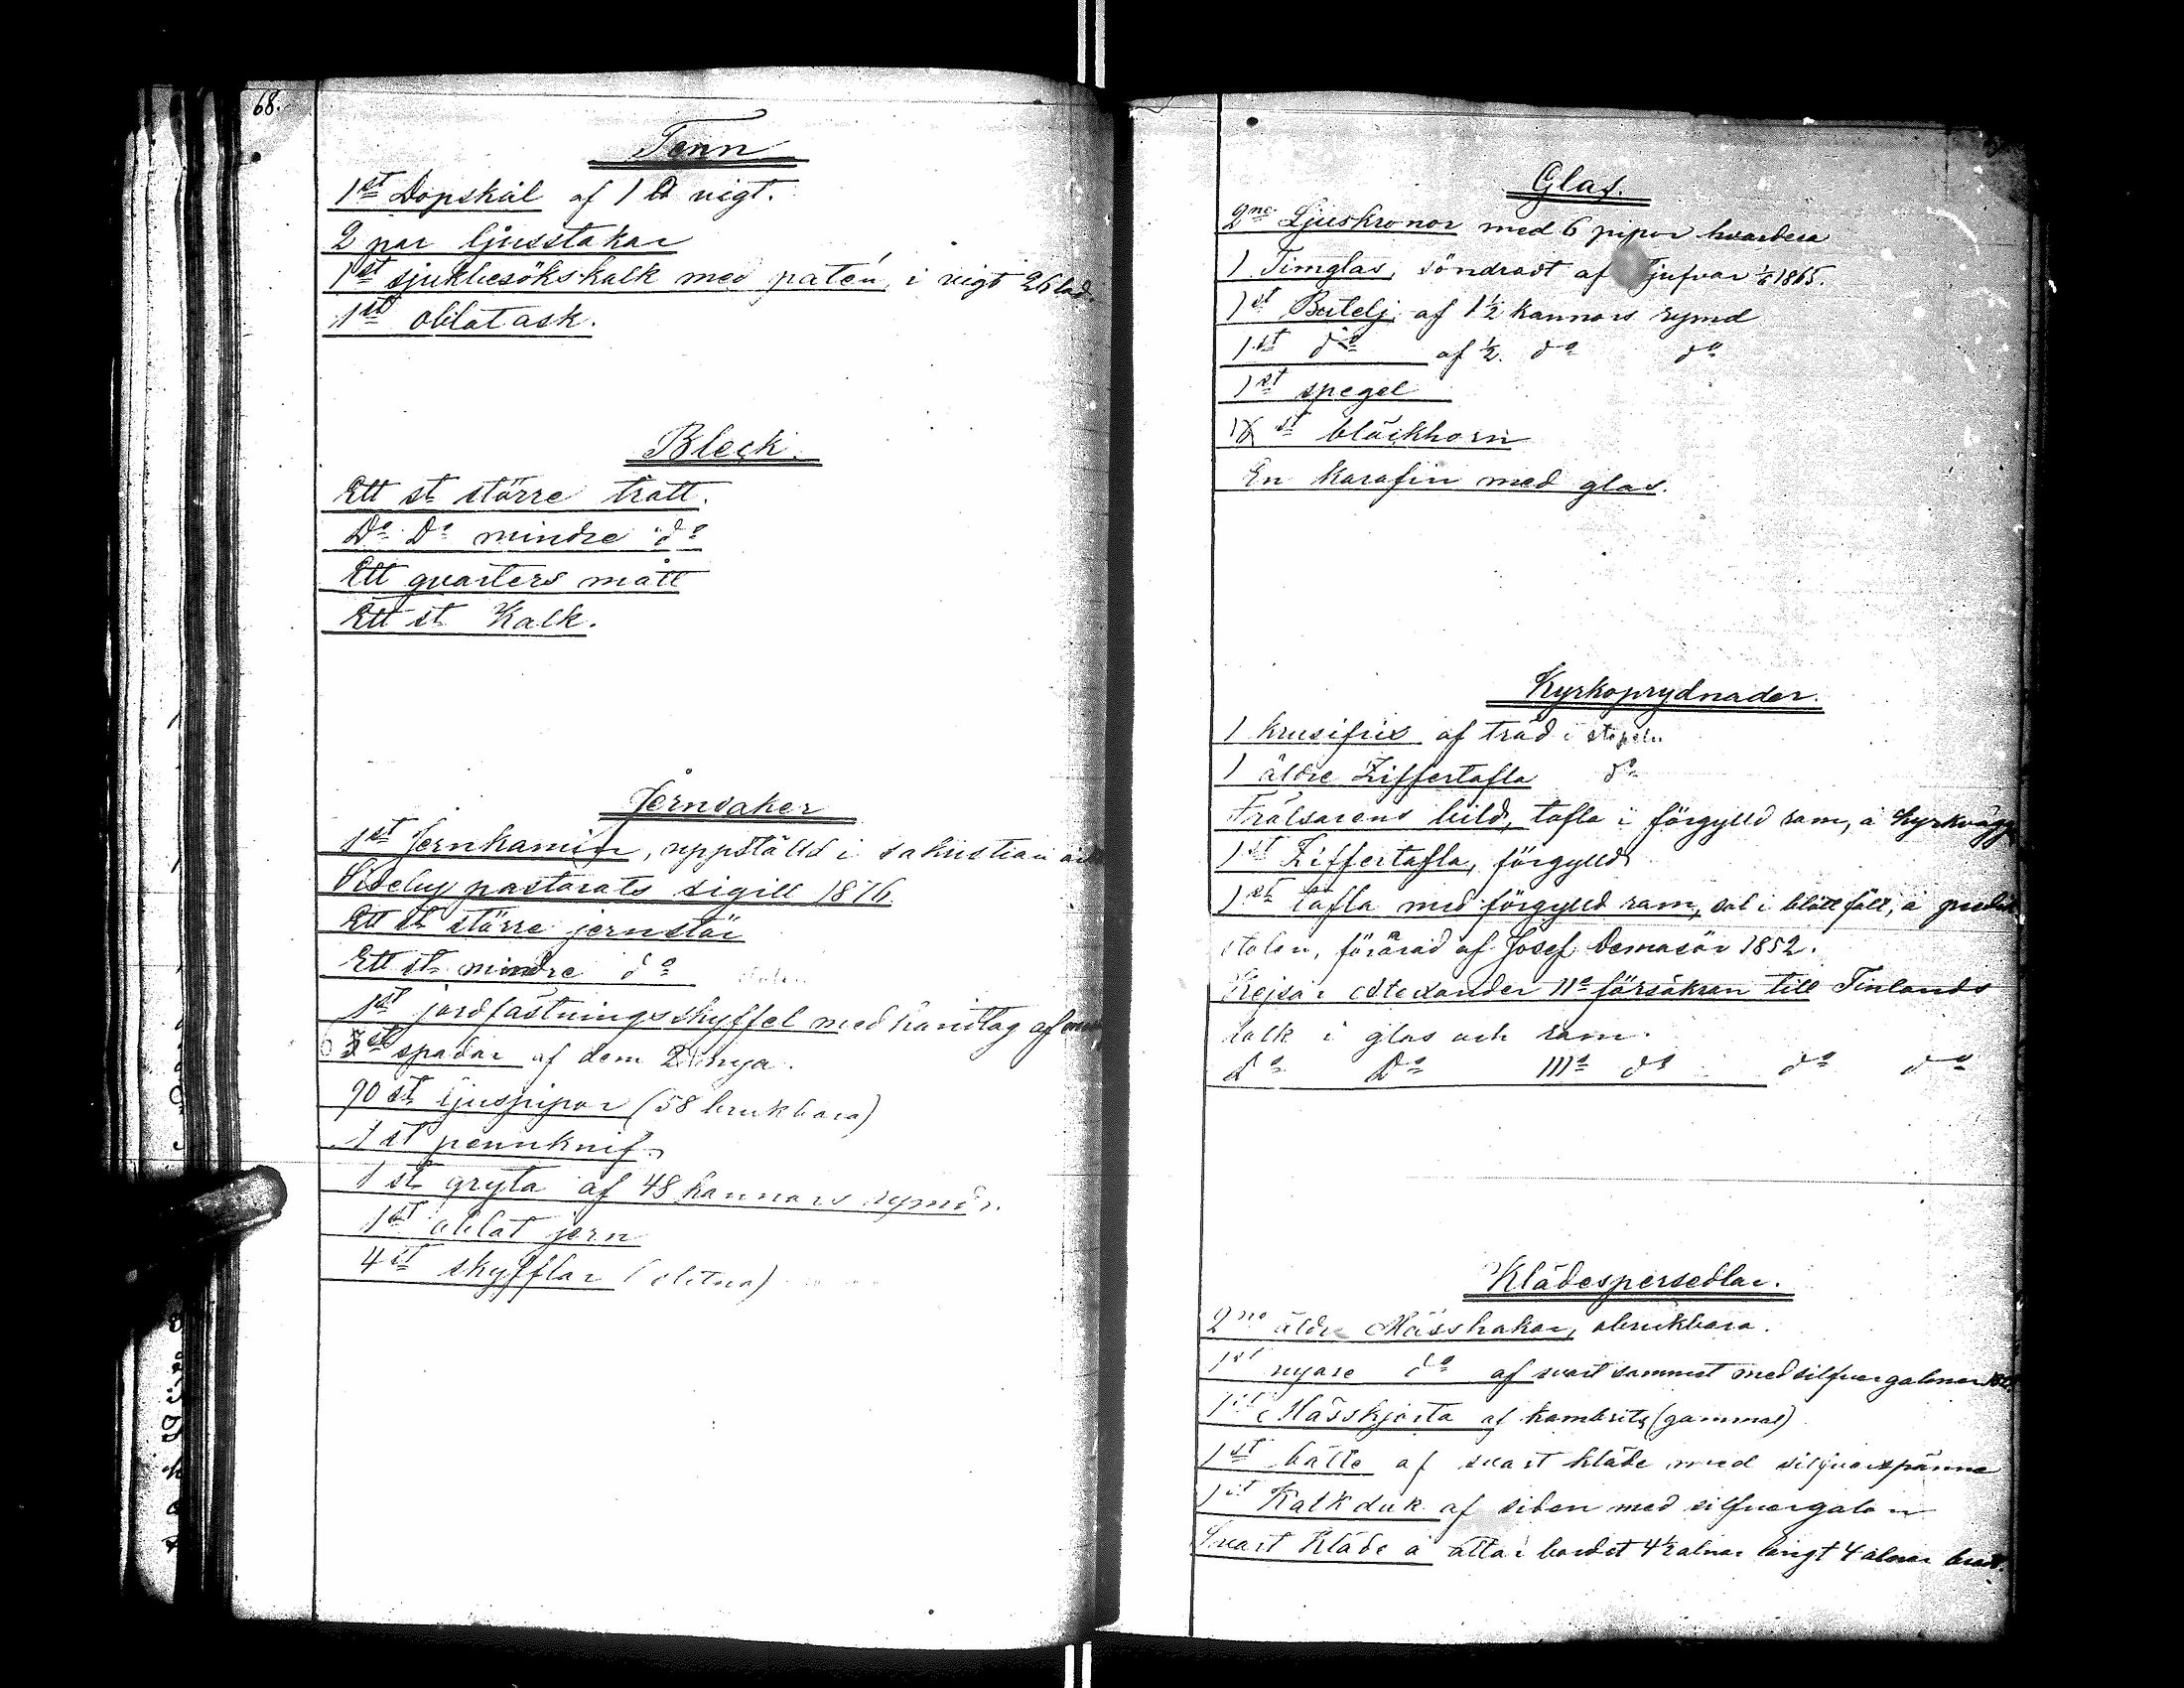 68.
Tenn
1 st Dopskål af 1 ℔ vigt.
2 par ljusstakar
1 st sjukbesökskalk med patén, i vigt 26 lod.
1 st oblatask.
Bleck.
Ett st större tratt.
Do Do mindre do
Ett qvarters mått
Ett st Kalk.
Jernsaker
1 st Jernkamin, uppställd i sakristian
pastorats sigill 1876.
Ett st större jernstör
Ett st mindre do
1 st jordfästningsskyffel med handtag af
st spadar af dem 2 nya.
90 st ljuspipor (58 brukbara)
1 st pennknif.
1 st gryta af 48 kannors rymd.
1 st oblat jern
4 st skyfflar (slitna)
Glas.
2ne Ljuskronor med 6 pipor hvardera
1 Timglas, söndradt af tjufvar 1865.
1 st Butelj af 1½ kannors rymd
1 st do af ½ do do
1 st spegel
st bläckhorn
En karafin med glas.
Kyrkoprydnader.
1 krusifix af träd i stapeln
1 äldre Ziffertafla do
Frälsarens bild, tafla i förgylld ram, å kyrkvägg
1 st Ziffertafla, förgylld
1 st tafla med förgylld ram, sol i blått fält, å predik
stolen, förärad af Josef Demasör 1852.
Kejsar Alexander IIs försäkran till Finlands
folk i glas och ram.
Do Do IIIs do do do
Klädespersedlar.
2ne äldre Mässhakar, obrukbara.
1 st nyare do af svart sammet med silfvergaloner
1 st Mässkjorta af kambrits (gammal)
1 st bälte af svart kläde med silfverspänne
1 st Kalkduk af siden med silfvergalon
Svart Kläde å altarbordet 4½ alnar långt 4 alnar bredt.